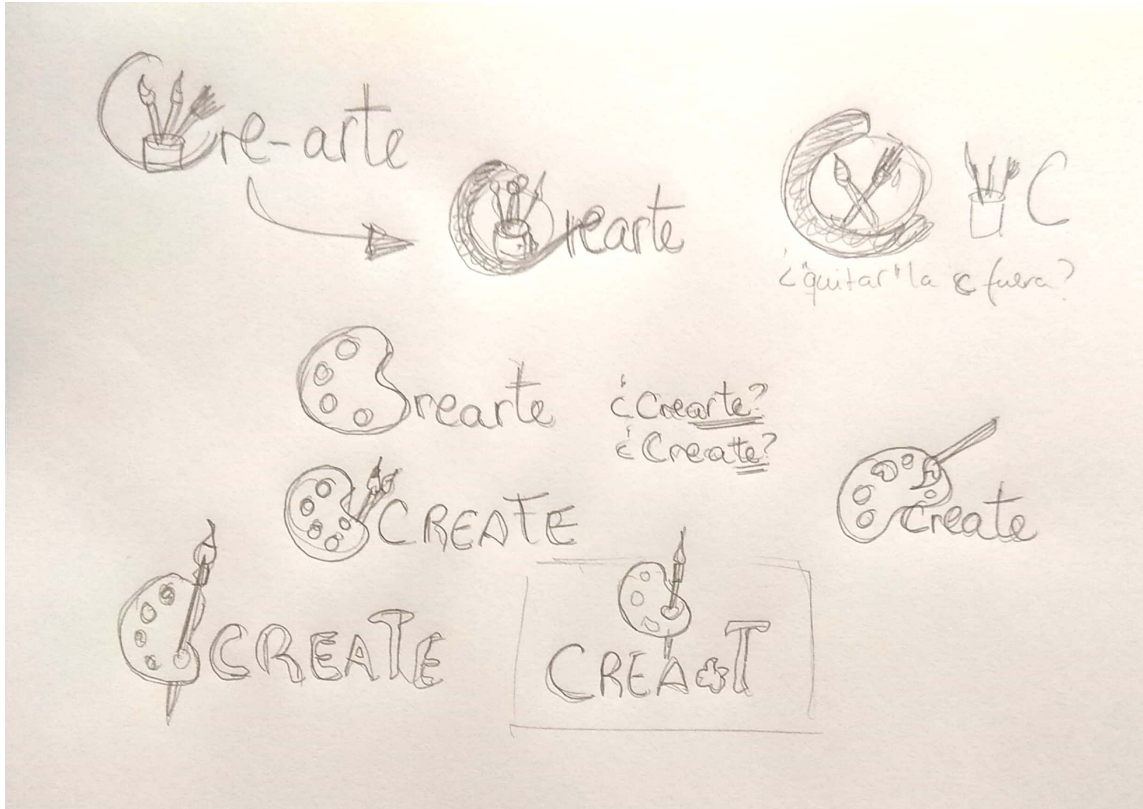 Cre-arte
Crearte
C
¿"quitar" la c fuera?
rearte
¿Crearte?
¿Create?
CREATE
create
CREATE
CREA T